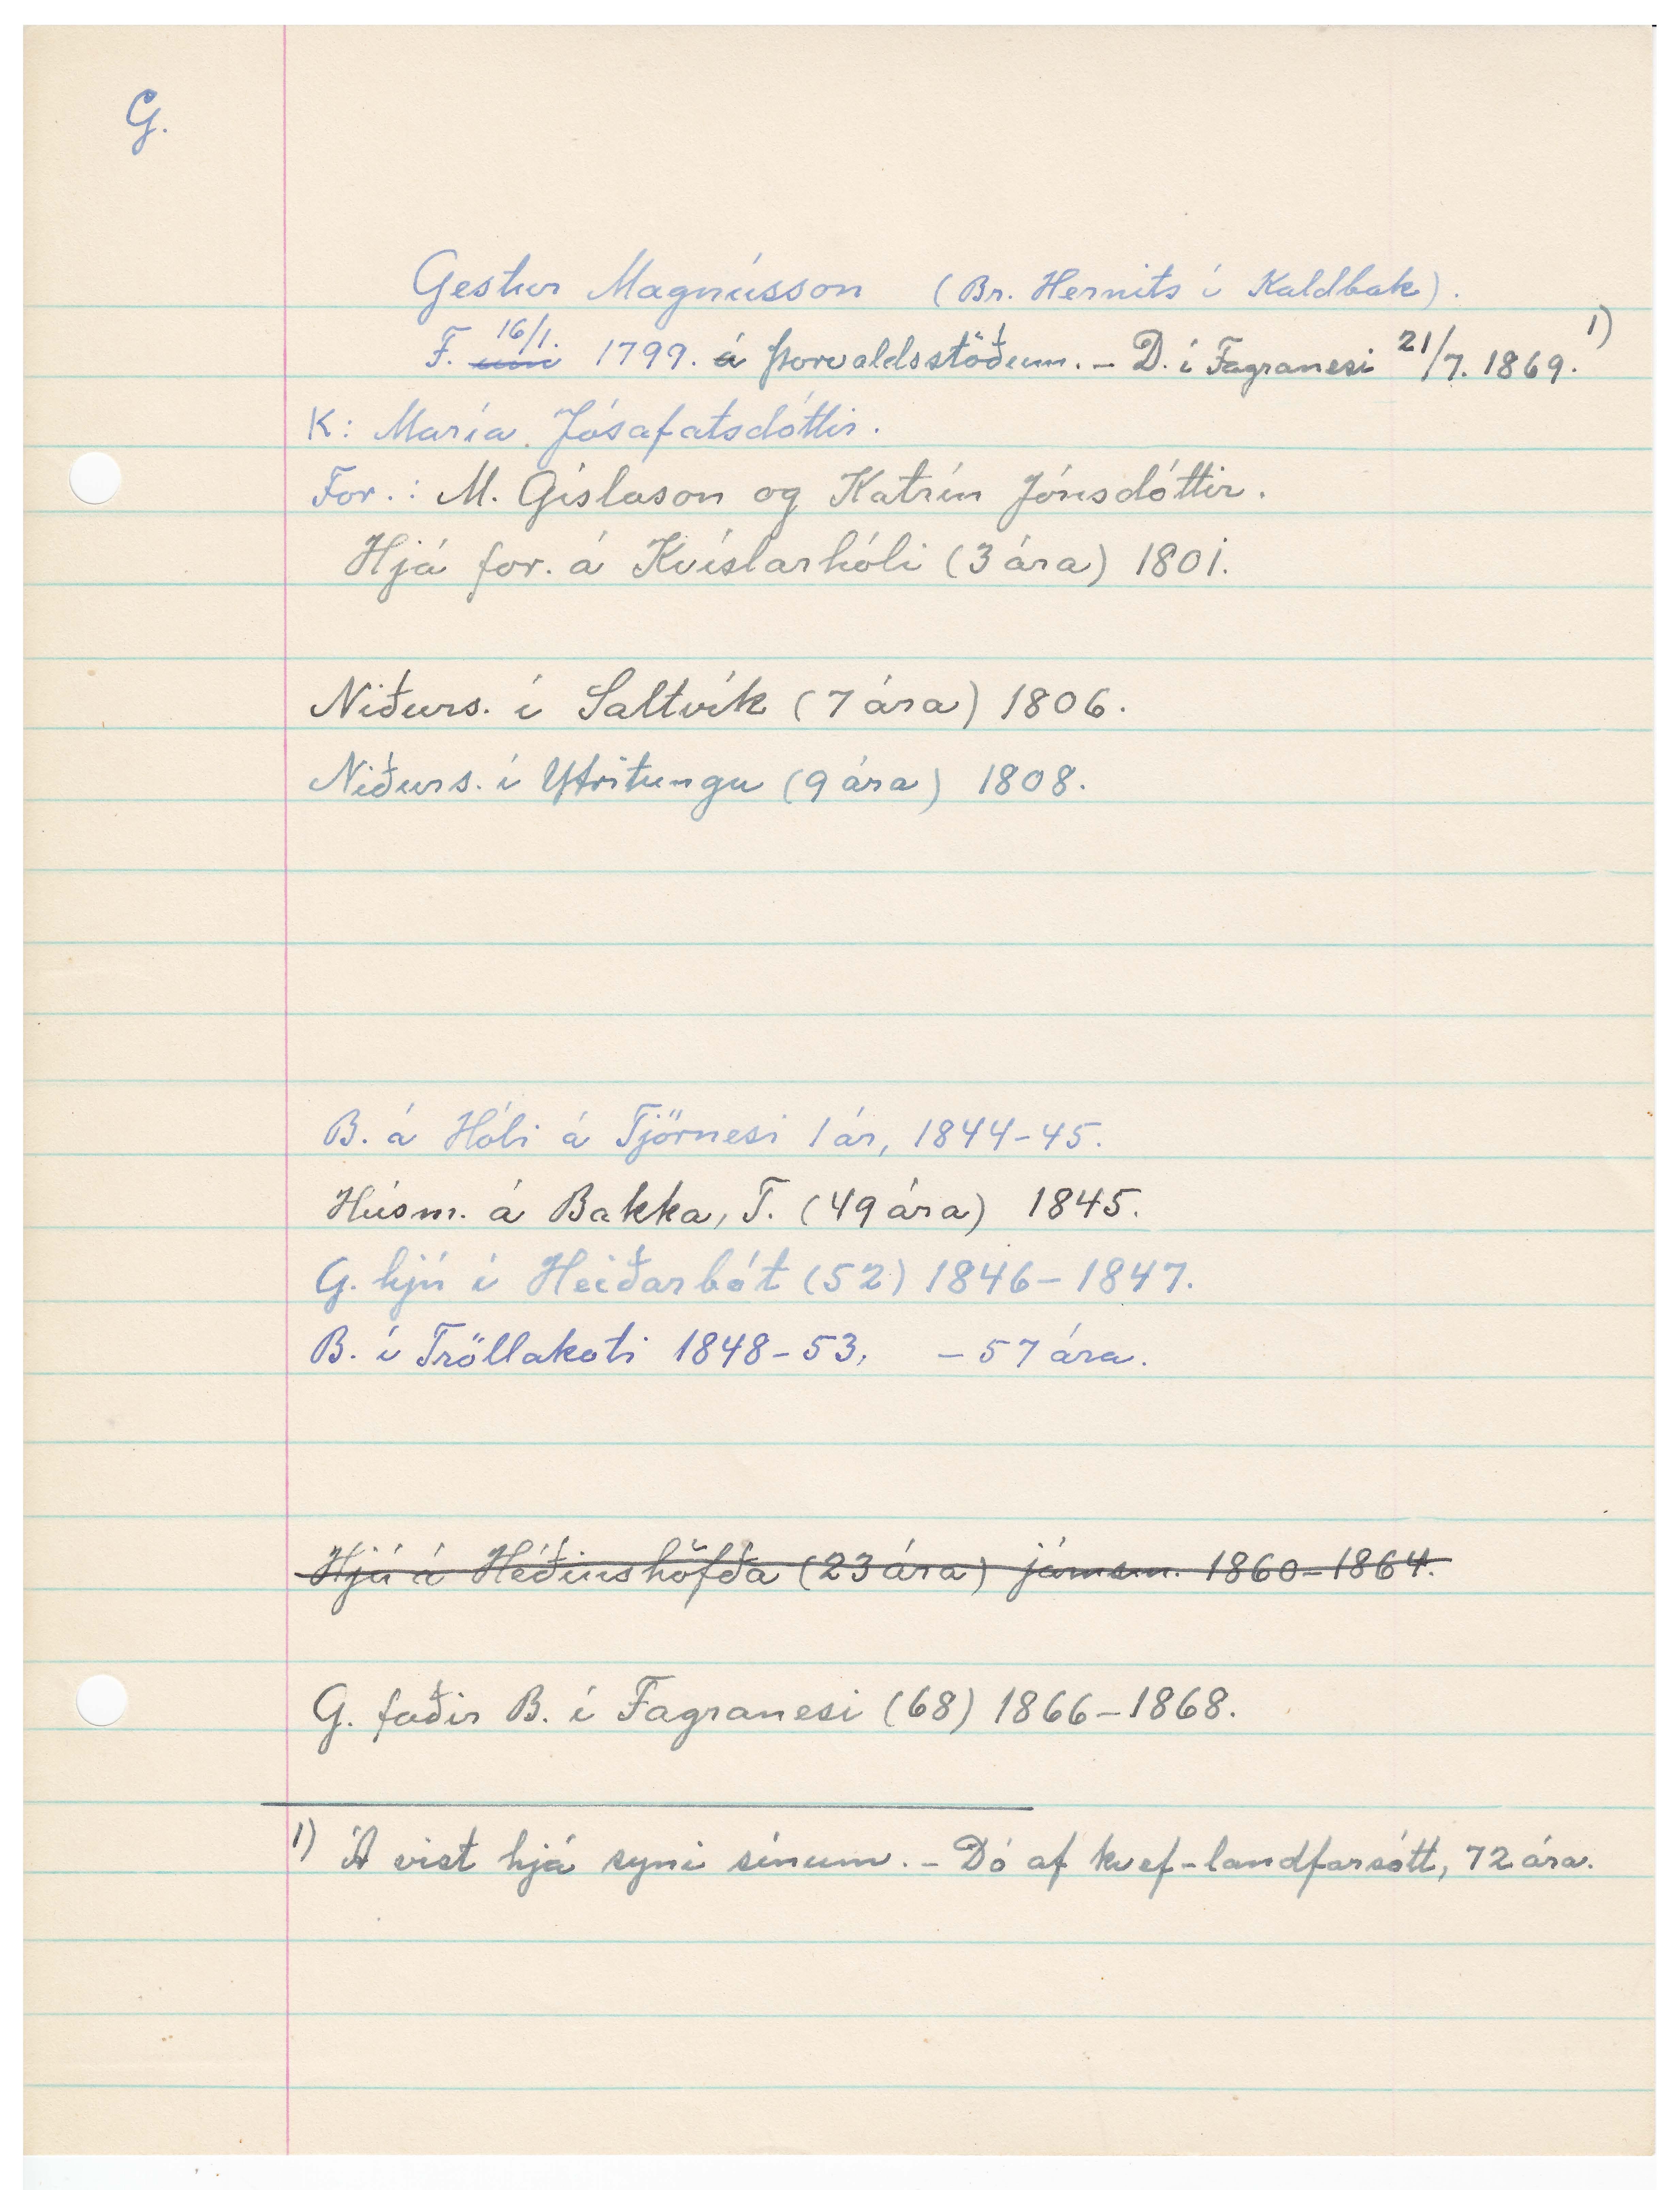 G.
Gestur Magnússon (Br. Hernits í Kaldbak).
F. um 16/1. 1799. á Þorvaldsstöðum. - D. í Fagranesi 21/7. 1869. 1)
K: María Jósafatsdóttir.
For.: M. Gíslason og Katrín Jónsdóttir.
Hjá for. á Kvíslarhóli (3 ára) 1801.
Niðurs. í Saltvík (7 ára) 1806.
Niðurs. í Ytritungu (9 ára) 1808.
B. á Hóli á Tjörnesi 1 ár, 1844-45.
Húsm. á Bakka, T. (49 ára) 1845.
G. hjú í Heiðarbót (52) 1846-1847.
B. í Tröllakoti 1848-53, - 57 ára.
Hjú á Héðinshöfða (23 ára) járnsm. 1860-1864.
G. faðir B. í Fagranesi (68) 1866-1868.
1) Á vist hjá syni sínum. - Dó af kvef-landfarsótt, 72 ára.